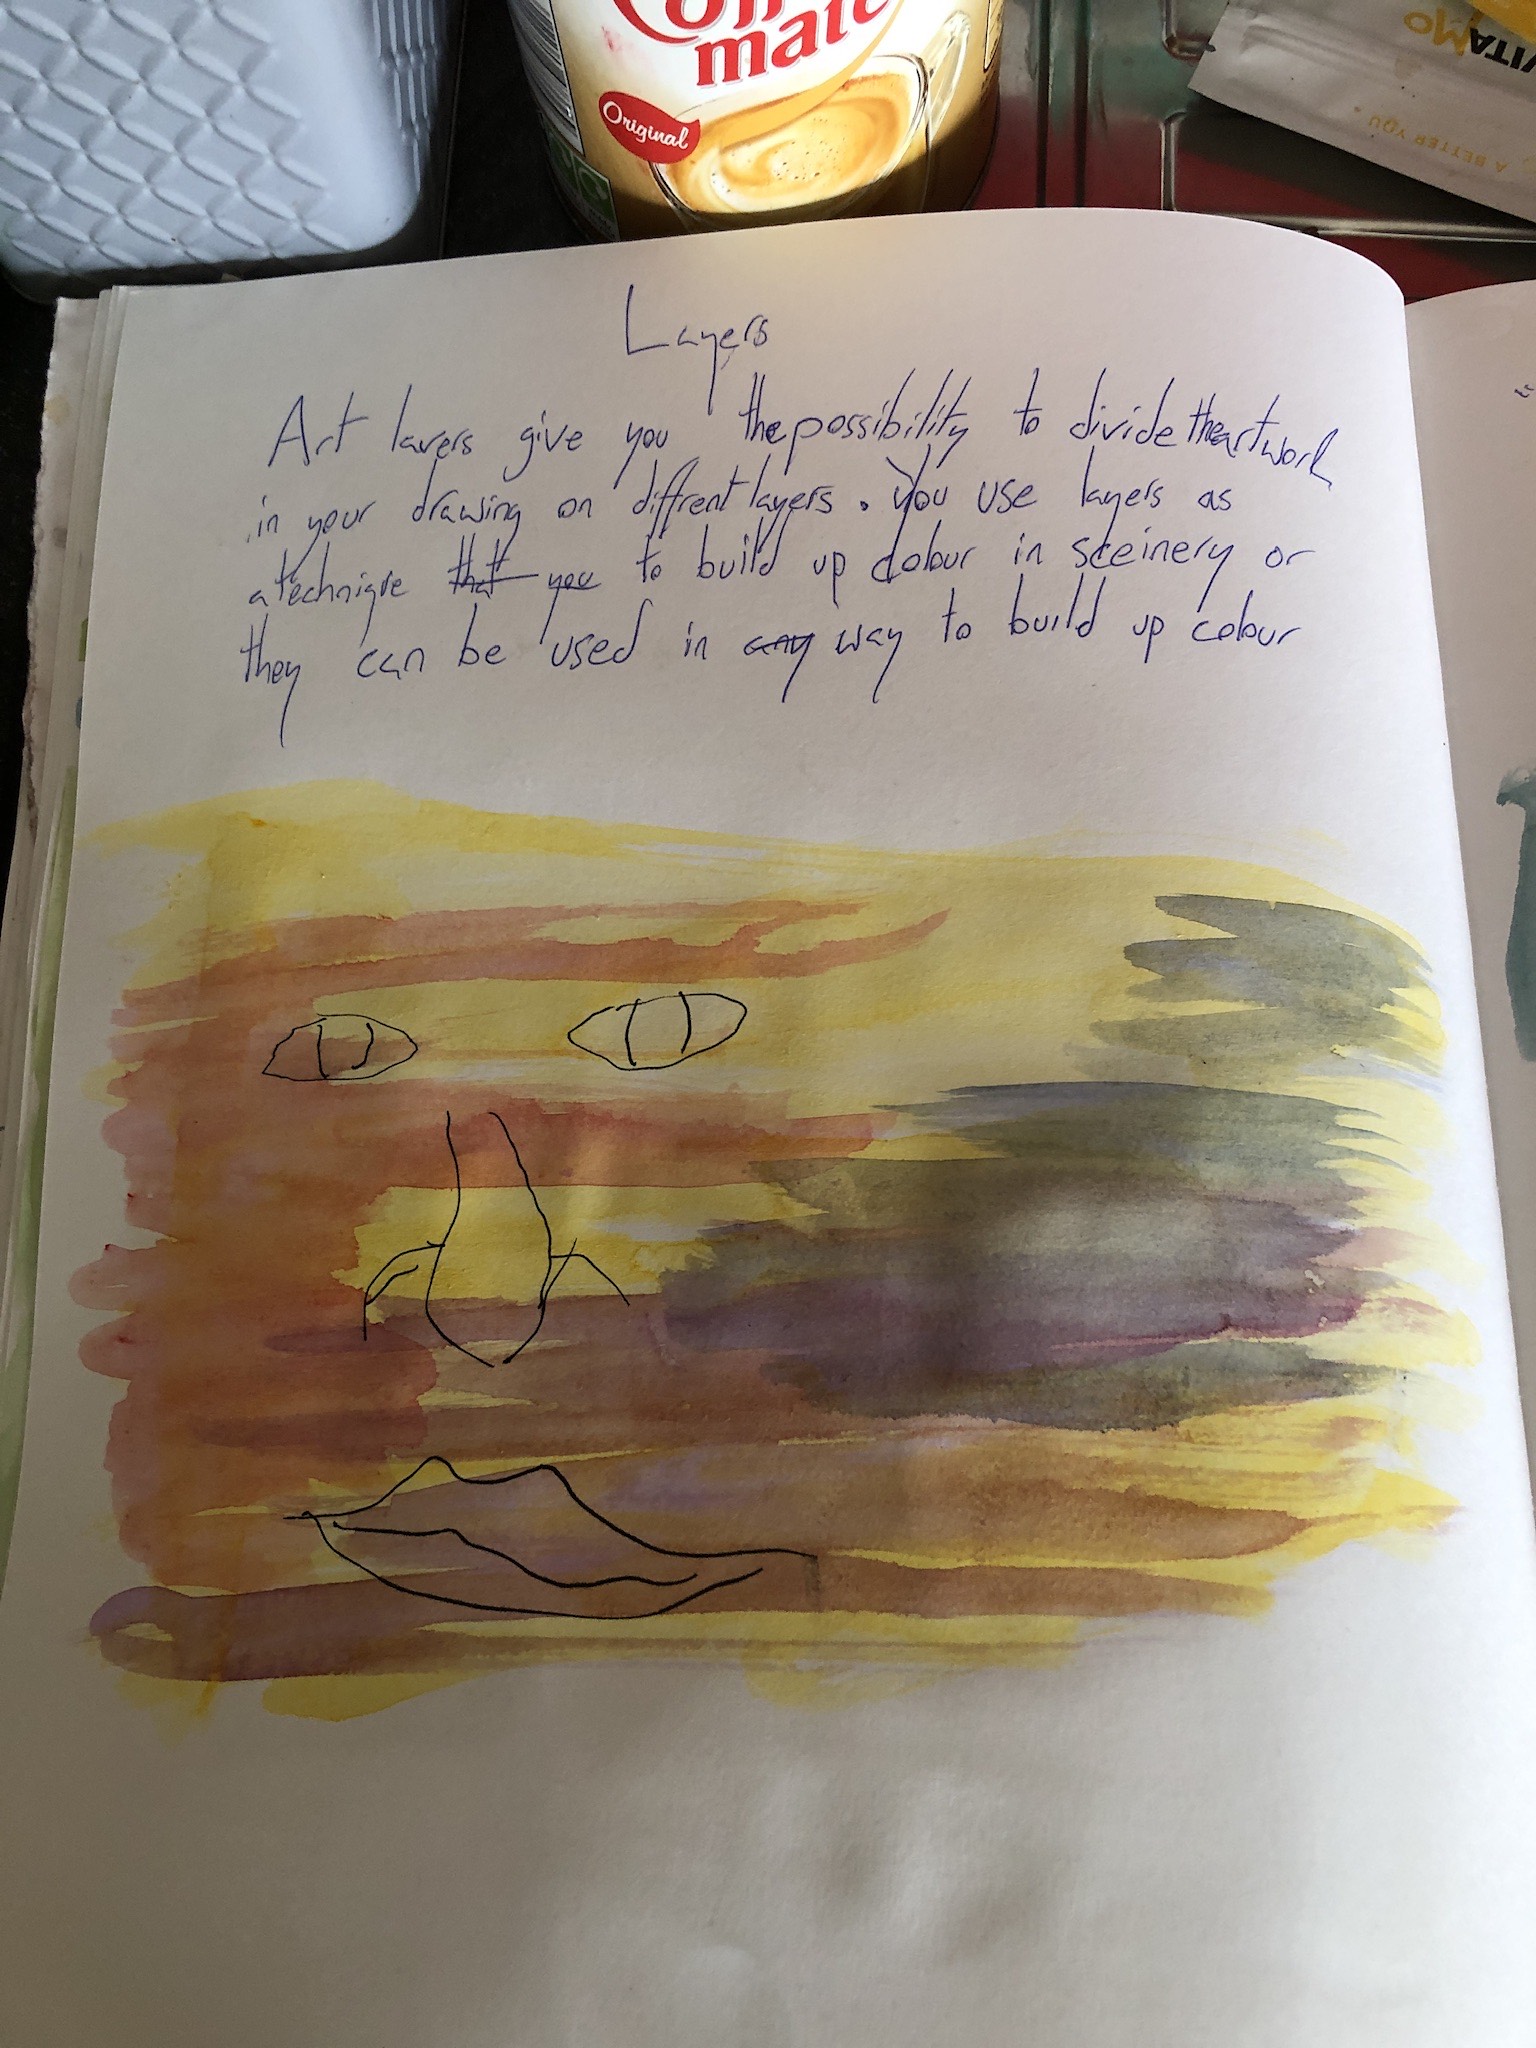 mate
Original
VITAMO
A BETTER YOU
Layers
Art layers give you the possibility to divide the artwork
in your drawing on diffrent layers. You use layers as
a technique that you to build up colour in sceinery or
they can be used in any way to build up colour